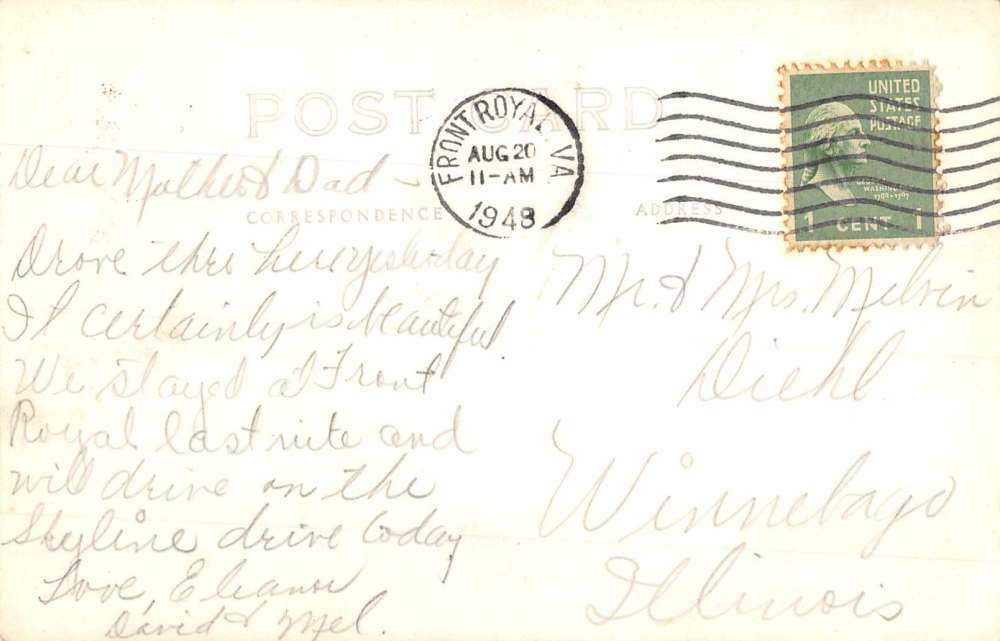 POST CARD
FRONT ROYAL, VA.
AUG 20
11-AM
1948
UNITED
STATES
POSTAGE
GEORGE
WASHINGTON
1789-1797
1 CENT 1
CORRESPONDENCE
ADDRESS
Dear Mother & Dad –
Drove thru here yesterday
It certainly is beautiful.
We stayed at Front
Royal last nite and
will drive on the
Skyline drive today
Love, Eleanor
David & Mel.
Mr. & Mrs. Melvin
Diehl
Winnebago
Illinois